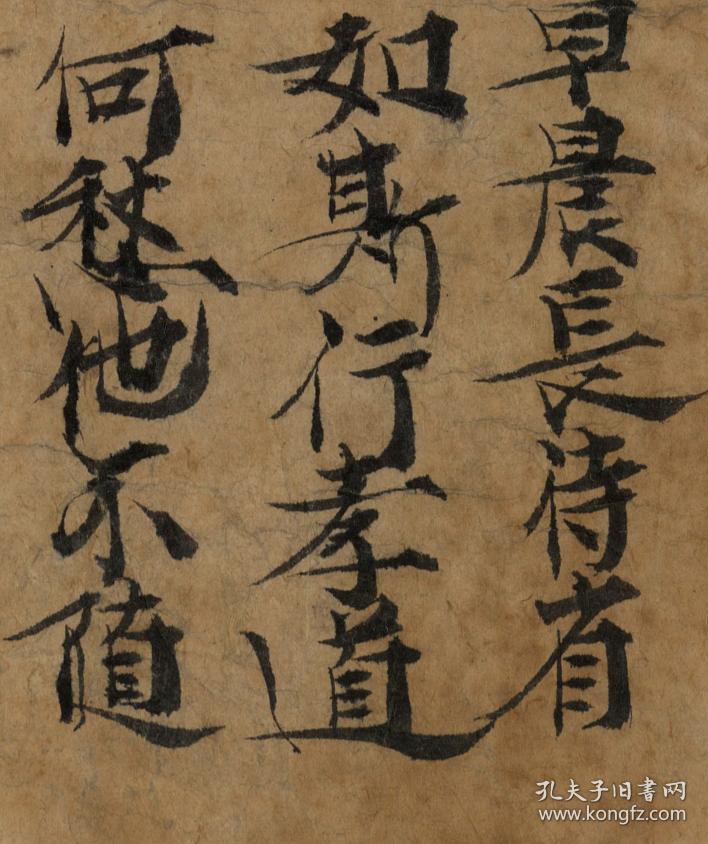 早晨長待省
如斯行孝道
何愁他不随
孔夫子旧書网
www.kongfz.com